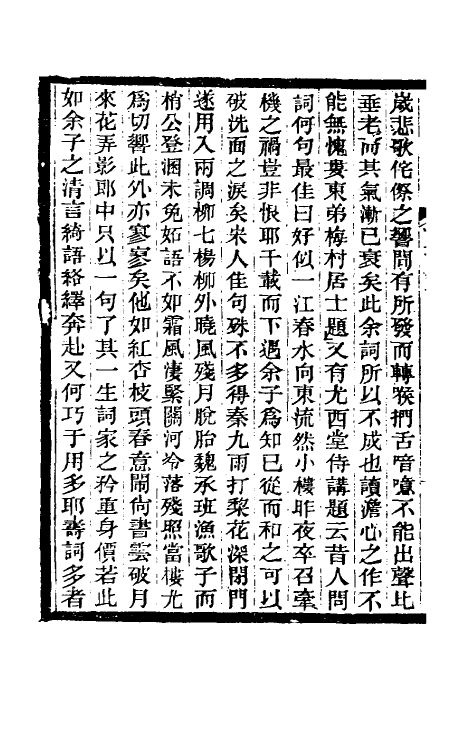 歲悲歌侘傺之響間有所發而轉喉捫舌喑噫不能出聲比
垂老而其氣漸已衰矣此余詞所以不成也讀澹心之作不
能無愧婁東弟梅村居士題又有尤西堂侍講題云昔人問
詞何句最佳曰好似一江春水向東流然小樓昨夜卒召牽
機之禍豈非恨耶千載而下遇余子爲知已從而和之可以
破洗面之淚矣宋人佳句殊不多得秦九雨打梨花深閉門
遂用入兩調柳七楊柳外曉風殘月脫胎魏承班漁歌子而
梢公登溷未免姤語不如霜風淒緊關河冷落殘照當樓尤
爲切響此外亦寥寥矣他如紅杏枝頭春意鬧尙書雲破月
來花弄影郎中只以一句了其一生詞家之矜重身價若此
如余子之清言綺語絡繹奔赴又何巧于用多耶壽詞多者